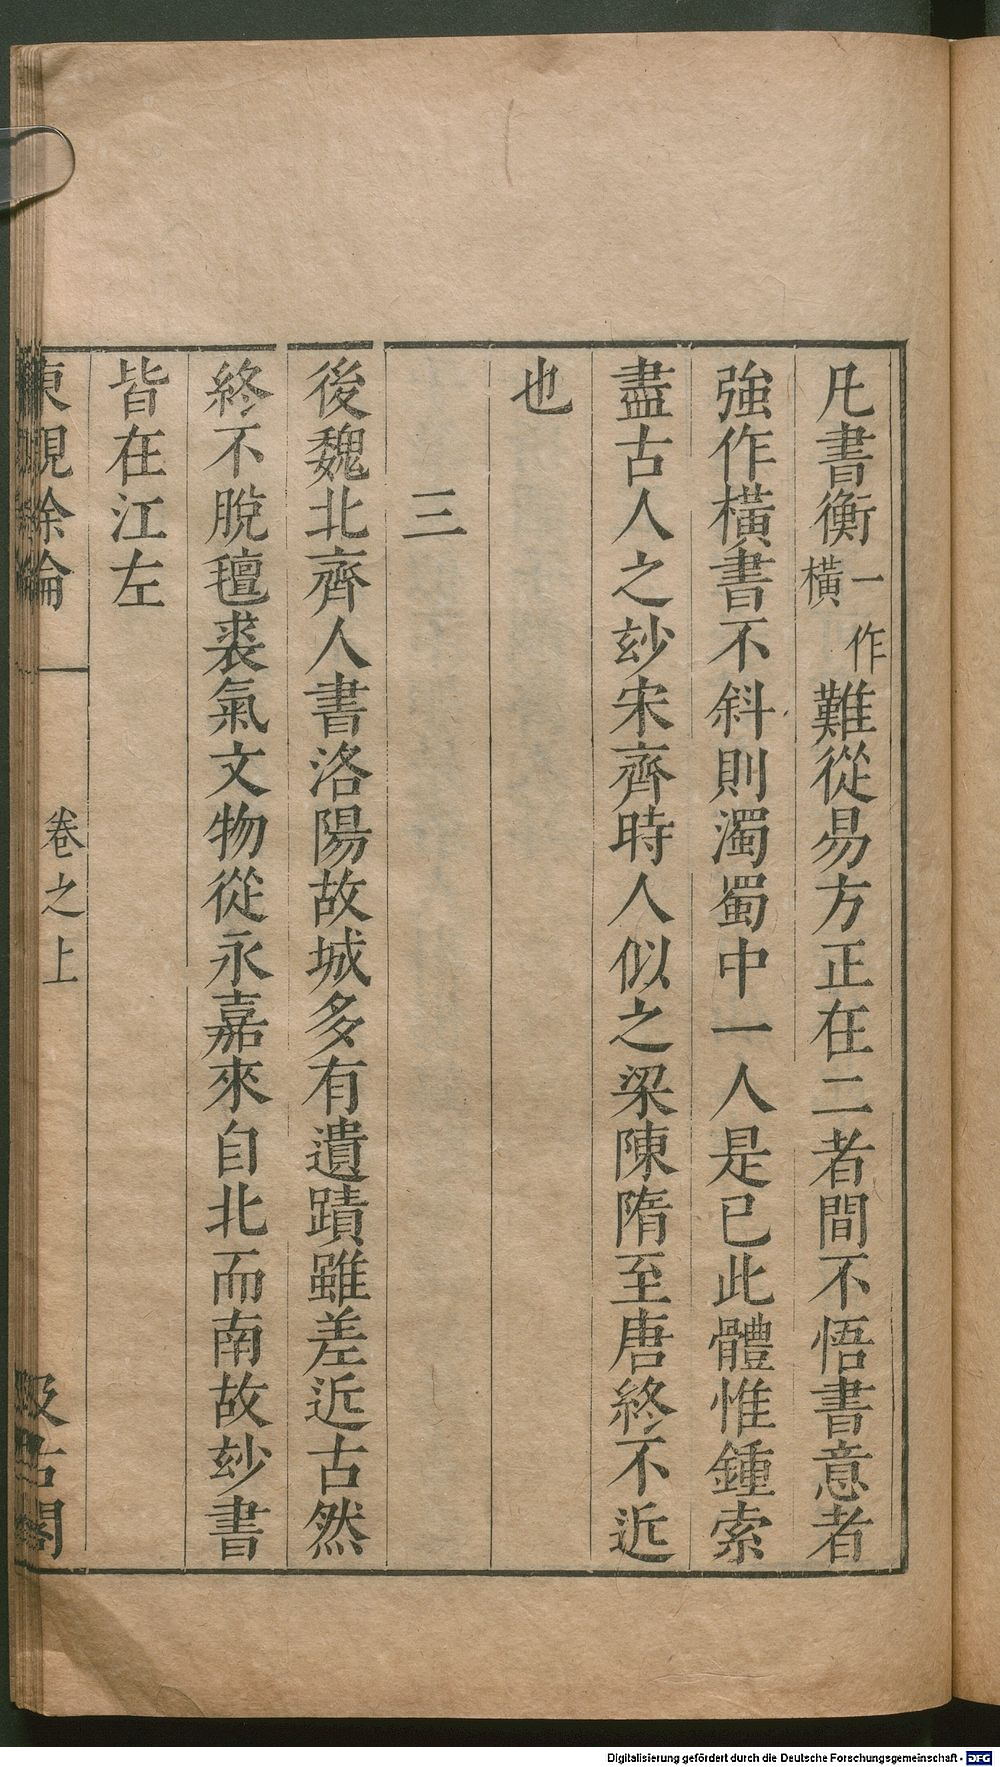 凡書衡一作橫難從易方正在二者間不悟書意者
強作橫書不斜則濁蜀中一人是已此體惟鍾索
盡古人之玅宋齊時人似之梁陳隋至唐終不近
也
三
後魏北齊人書洛陽故城多有遺蹟雖差近古然
終不脫氊裘氣文物從永嘉來自北而南故玅書
皆在江左
東觀餘論 卷之上 汲古閣
Digitalisierung gefördert durch die Deutsche Forschungsgemeinschaft - DFG